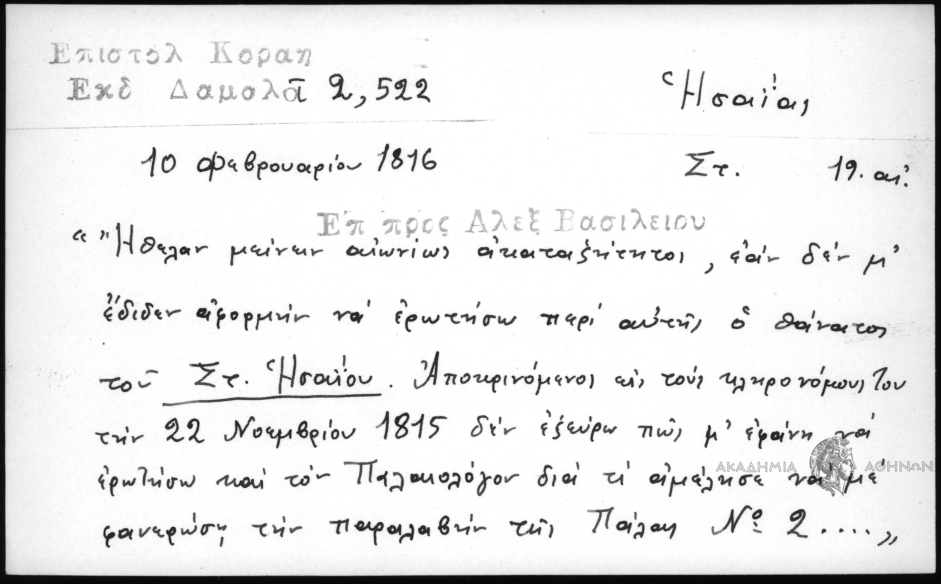 Επιστολ Κοραη
Εκδ Δαμαλᾶ 2,522
Ἡσαΐας
10 Φεβρουαρίου 1816
Στ. 19. αἰ.
Ἐπ προς Αλεξ Βασιλειου
“Ἤθελαν μείνειν αἰωνίως ἀκαταζήτητοι, ἐάν δέν μ᾽
ἔδιδεν ἀφορμήν νά ἐρωτήσω περί αὐτῆς ὁ θάνατος
τοῦ Στ. Ἡσαΐου. Ἀποκρινόμενος εἰς τούς κληρονόμους του
τήν 22 Νοεμβρίου 1815 δέν ἐξεύρω πῶς μ᾽ ἐφάνη νά
ἐρωτήσω καί τόν Παλαιολόγον διά τί ἀμέλησε νά μέ
φανερώσῃ τήν παραλαβήν τῆς Πάλας Νο 2....„
ΑΚΑΔΗΜΙΑ ΑΘΗΝΩΝ